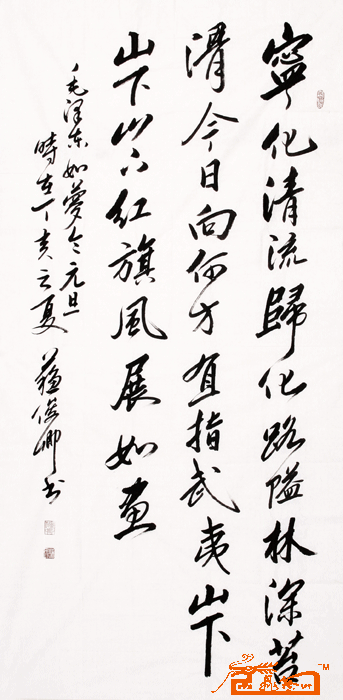 寧化清流歸化路隘林深苔
滑今日向何方直指武夷山下
山下山下紅旗風展如畫
毛澤東如夢令元旦
時在丁亥之夏 蘇俊卿书